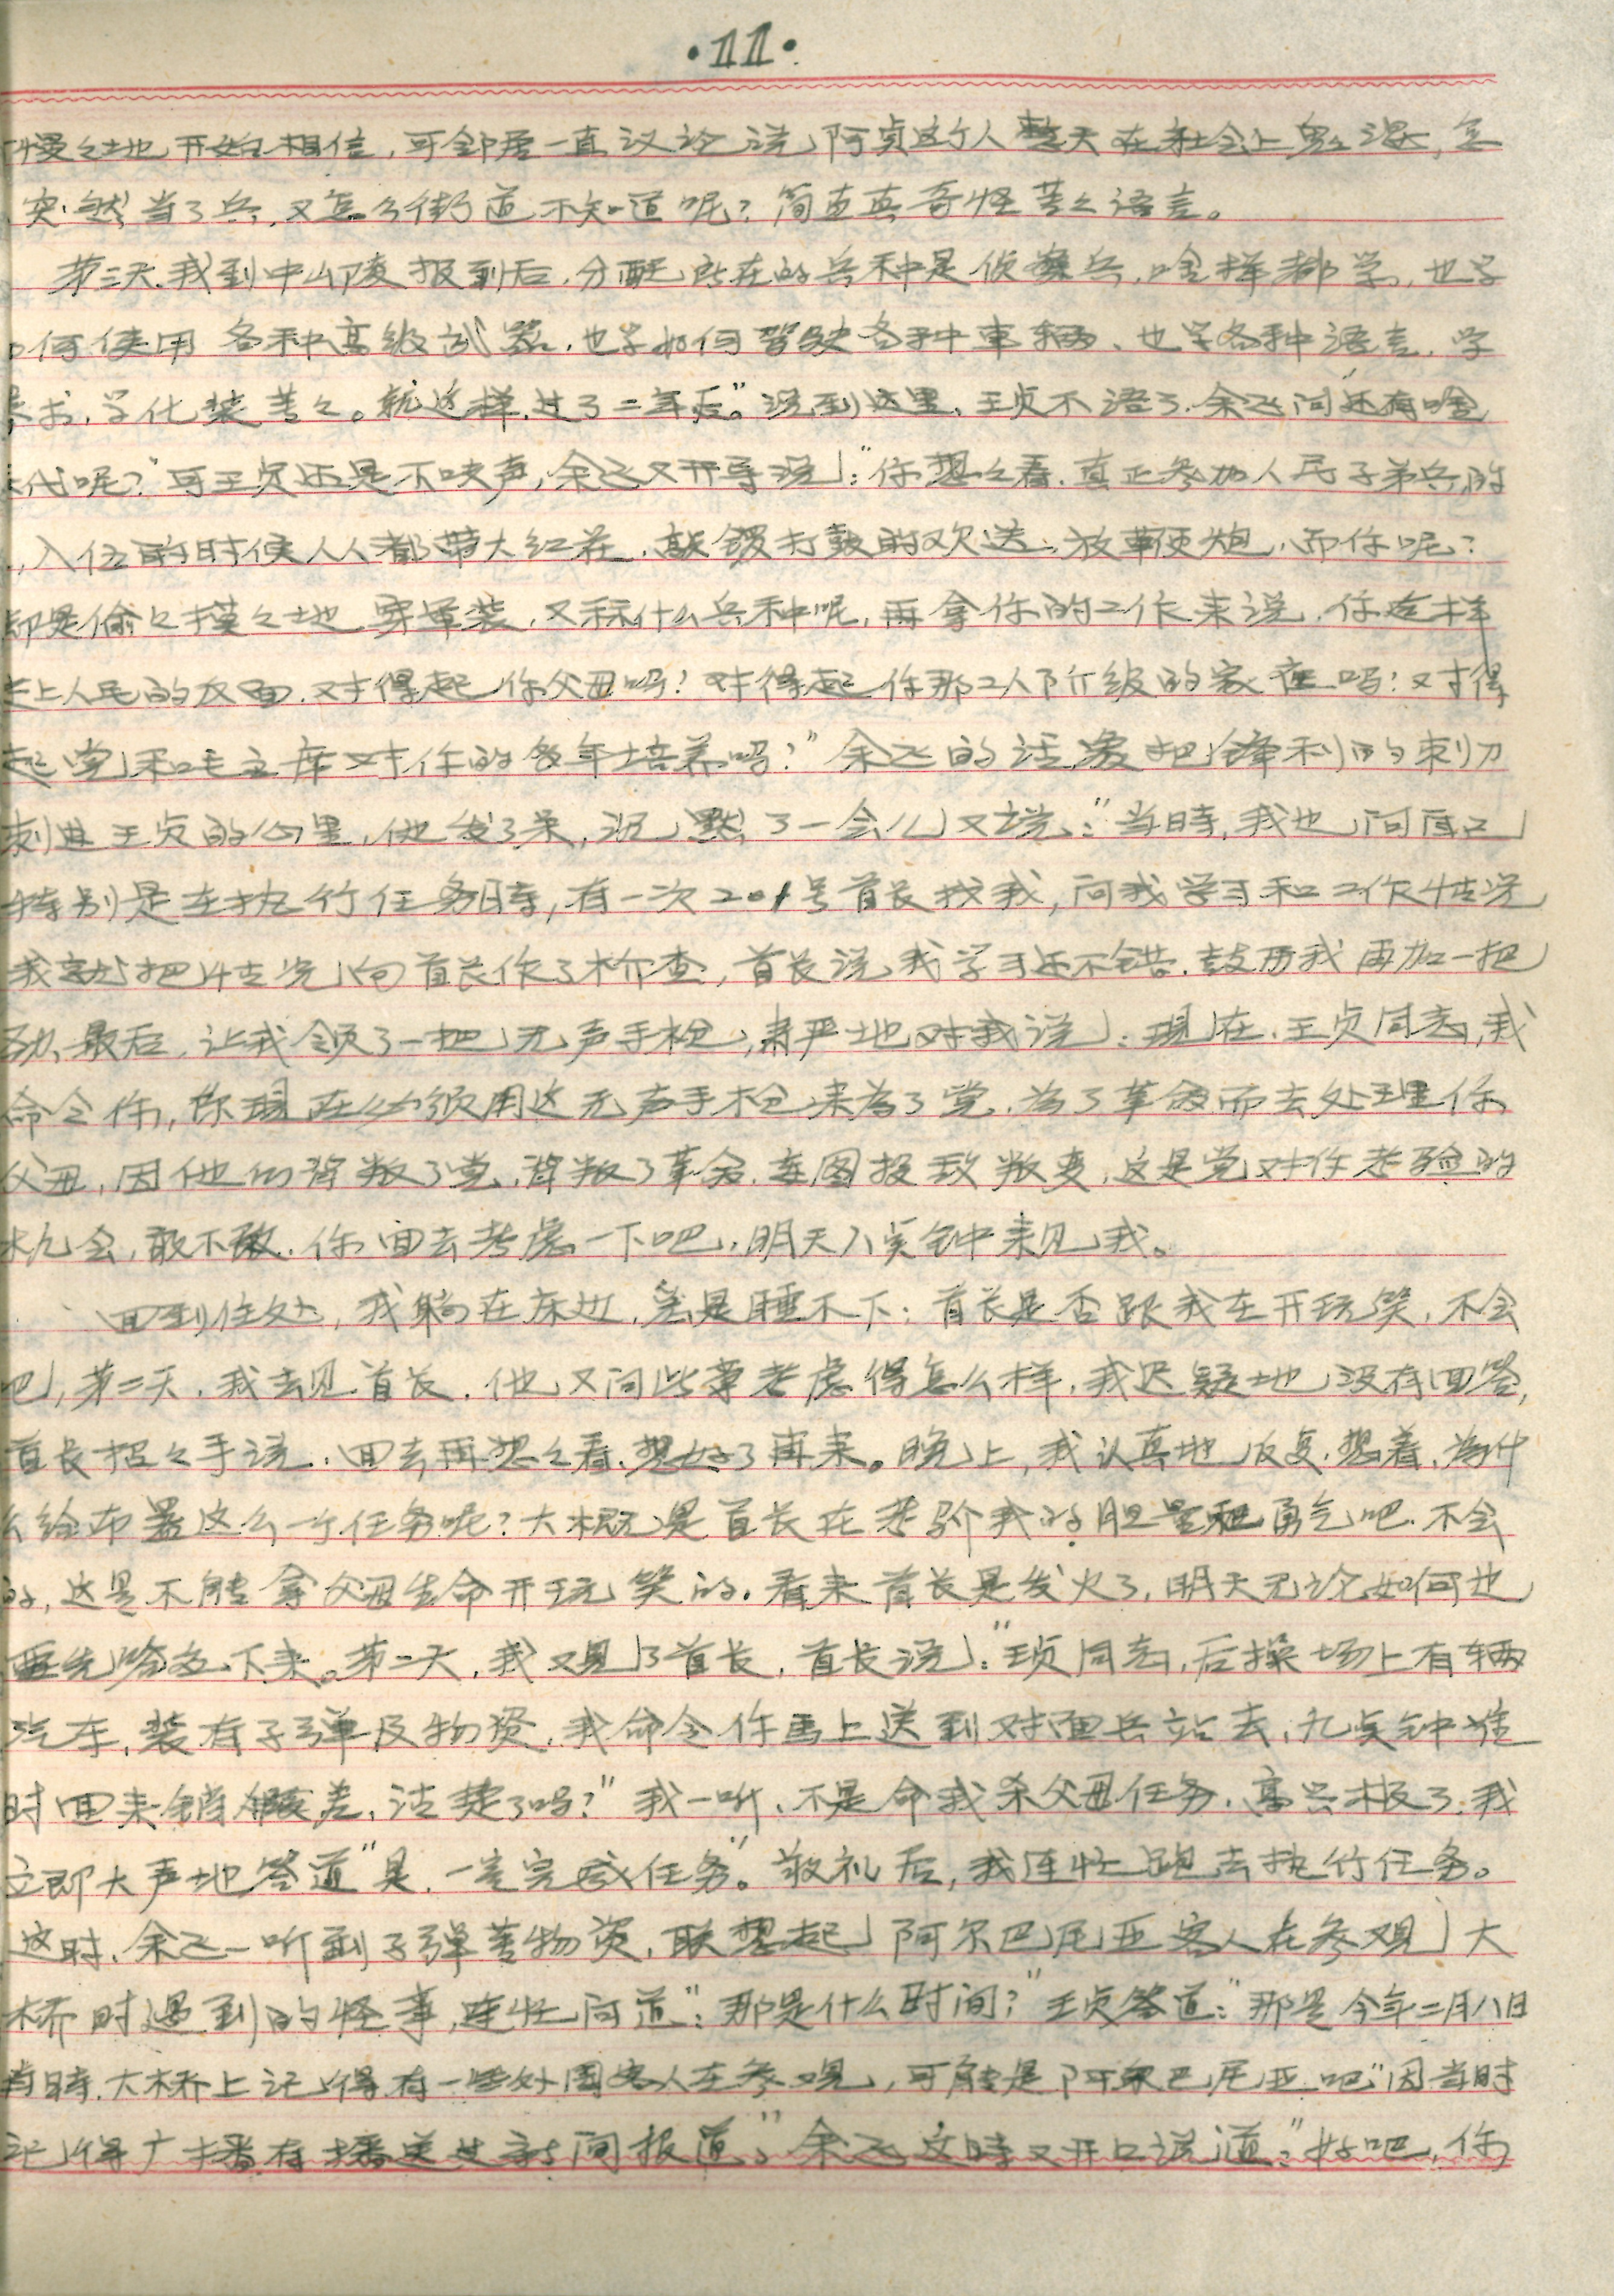 ·11·
慢々地开始相信，可邻居一直议论说，阿贞这个人整天在社会上鬼混，怎
突然当了兵，又怎么街道不知道呢？简直真奇怪等々语言。
第三天，我到中山陵报到后，分配所在的兵种是侦察兵，啥样都学，也学
何使用各种高级武器，也学如何驾驶各种车辆、也学各种语言，学
术，学化装等々。就这样，过了二年后。”说到这里，王贞不语了，余飞问“还有啥
代呢？”可王贞还是不吱声，余飞又开导说：“你想々看，真正参加人民子弟兵的
，入伍的时候人人都带大红花，敲锣打鼓的欢送，放鞭炮，而你呢？
却是偷々摸々地穿军装，又称什么兵种呢，再拿你的工作来说，你这样
走上人民的反面，对得起你父母吗？对得起你那工人阶级的家庭吗？对得
起党和毛主席对你的多年培养吗？”余飞的话象把锋利的刺刀
刺进王贞的心里，他发了呆，沉默了一会儿又说：“当時，我也问自己
特别是在执行任务時，有一次201号首长找我，问我学习和工作情况
我就把情况向首长作了检查，首长说，我学习还不错，鼓历我再加一把
劲，最后，让我领了一把无声手枪，肃严地对我说：现在，王贞同志，我
命令你，你现在必须用这无声手枪来为了党，为了革命而去处理你
父母，因他们背叛了党，背叛了革命，妄图投敌叛变，这是党对你考验的
机会，敢不敢，你回去考虑一下吧，明天八点钟来见我。
回到住处，我躺在床边，总是睡不下：首长是否跟我在开玩笑，不会
吧，第二天，我去见首长，他又问此事考虑得怎么样，我迟疑地没有回答，
首长招々手说，回去再想々看，想好了再来。晚上，我认真地反复想着，为什
么给布置这么一个任务呢？大概是首长在考验我的胆量和勇气吧，不会
的，这是不能拿父母生命开玩笑的，看来首长是发火了，明天无论如何也
要先答应下来。第二天，我又见了首长，首长说：“王贞同志，后操场上有辆
汽车，装有子弹及物资，我命令你马上送到对面兵站去，九点钟准
时回来销差，清楚了吗？”我一听，不是命我杀父母任务，高兴极了，我
立即大声地答道“是，一定完成任务”。敬礼后，我连忙跑去执行任务。
这时，余飞一听到子弹等物资，联想起阿尔巴尼亚客人在参观大
桥时遇到的怪事，连忙问道：“那是什么时间？”王贞答道：“那是今年二月八日
当時，大桥上记得有一些外国客人在参观，可能是阿尔巴尼亚吧”因当时
记得广播有播送过新闻报道”，余飞这時又开口说道：“好吧，你